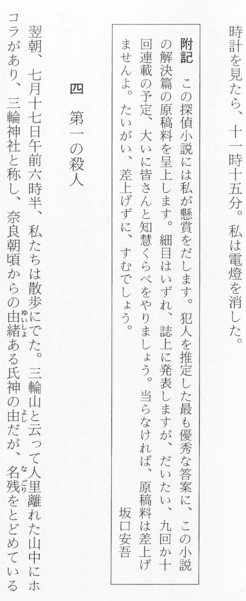 時計を見たら、十一時十五分。私は電燈を消した。
附記　この探偵小説には私が懸賞をだします。犯人を推定した最も優秀な答案に、この小説
の解決篇の原稿料を呈上します。細目はいずれ、誌上に発表しますが、だいたい、九回か十
回連載の予定、大いに皆さんと知慧くらべをやりましょう。当らなければ、原稿料は差上げ
ませんよ。たいがい、差上げずに、すむでしょう。
坂口安吾
四　第一の殺人
翌朝、七月十七日午前六時半、私たちは散歩にでた。三輪山と云って人里離れた山中にホ
コラがあり、三輪神社と称し、奈良朝頃からの由緒ある氏神の由だが、名残をとどめている